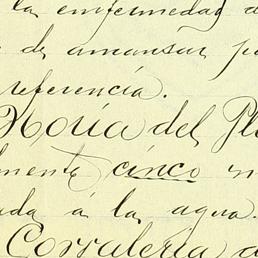 la enfermedad
de amansar
referencia.
Noria del
cinco
á la agua.
Corraleria